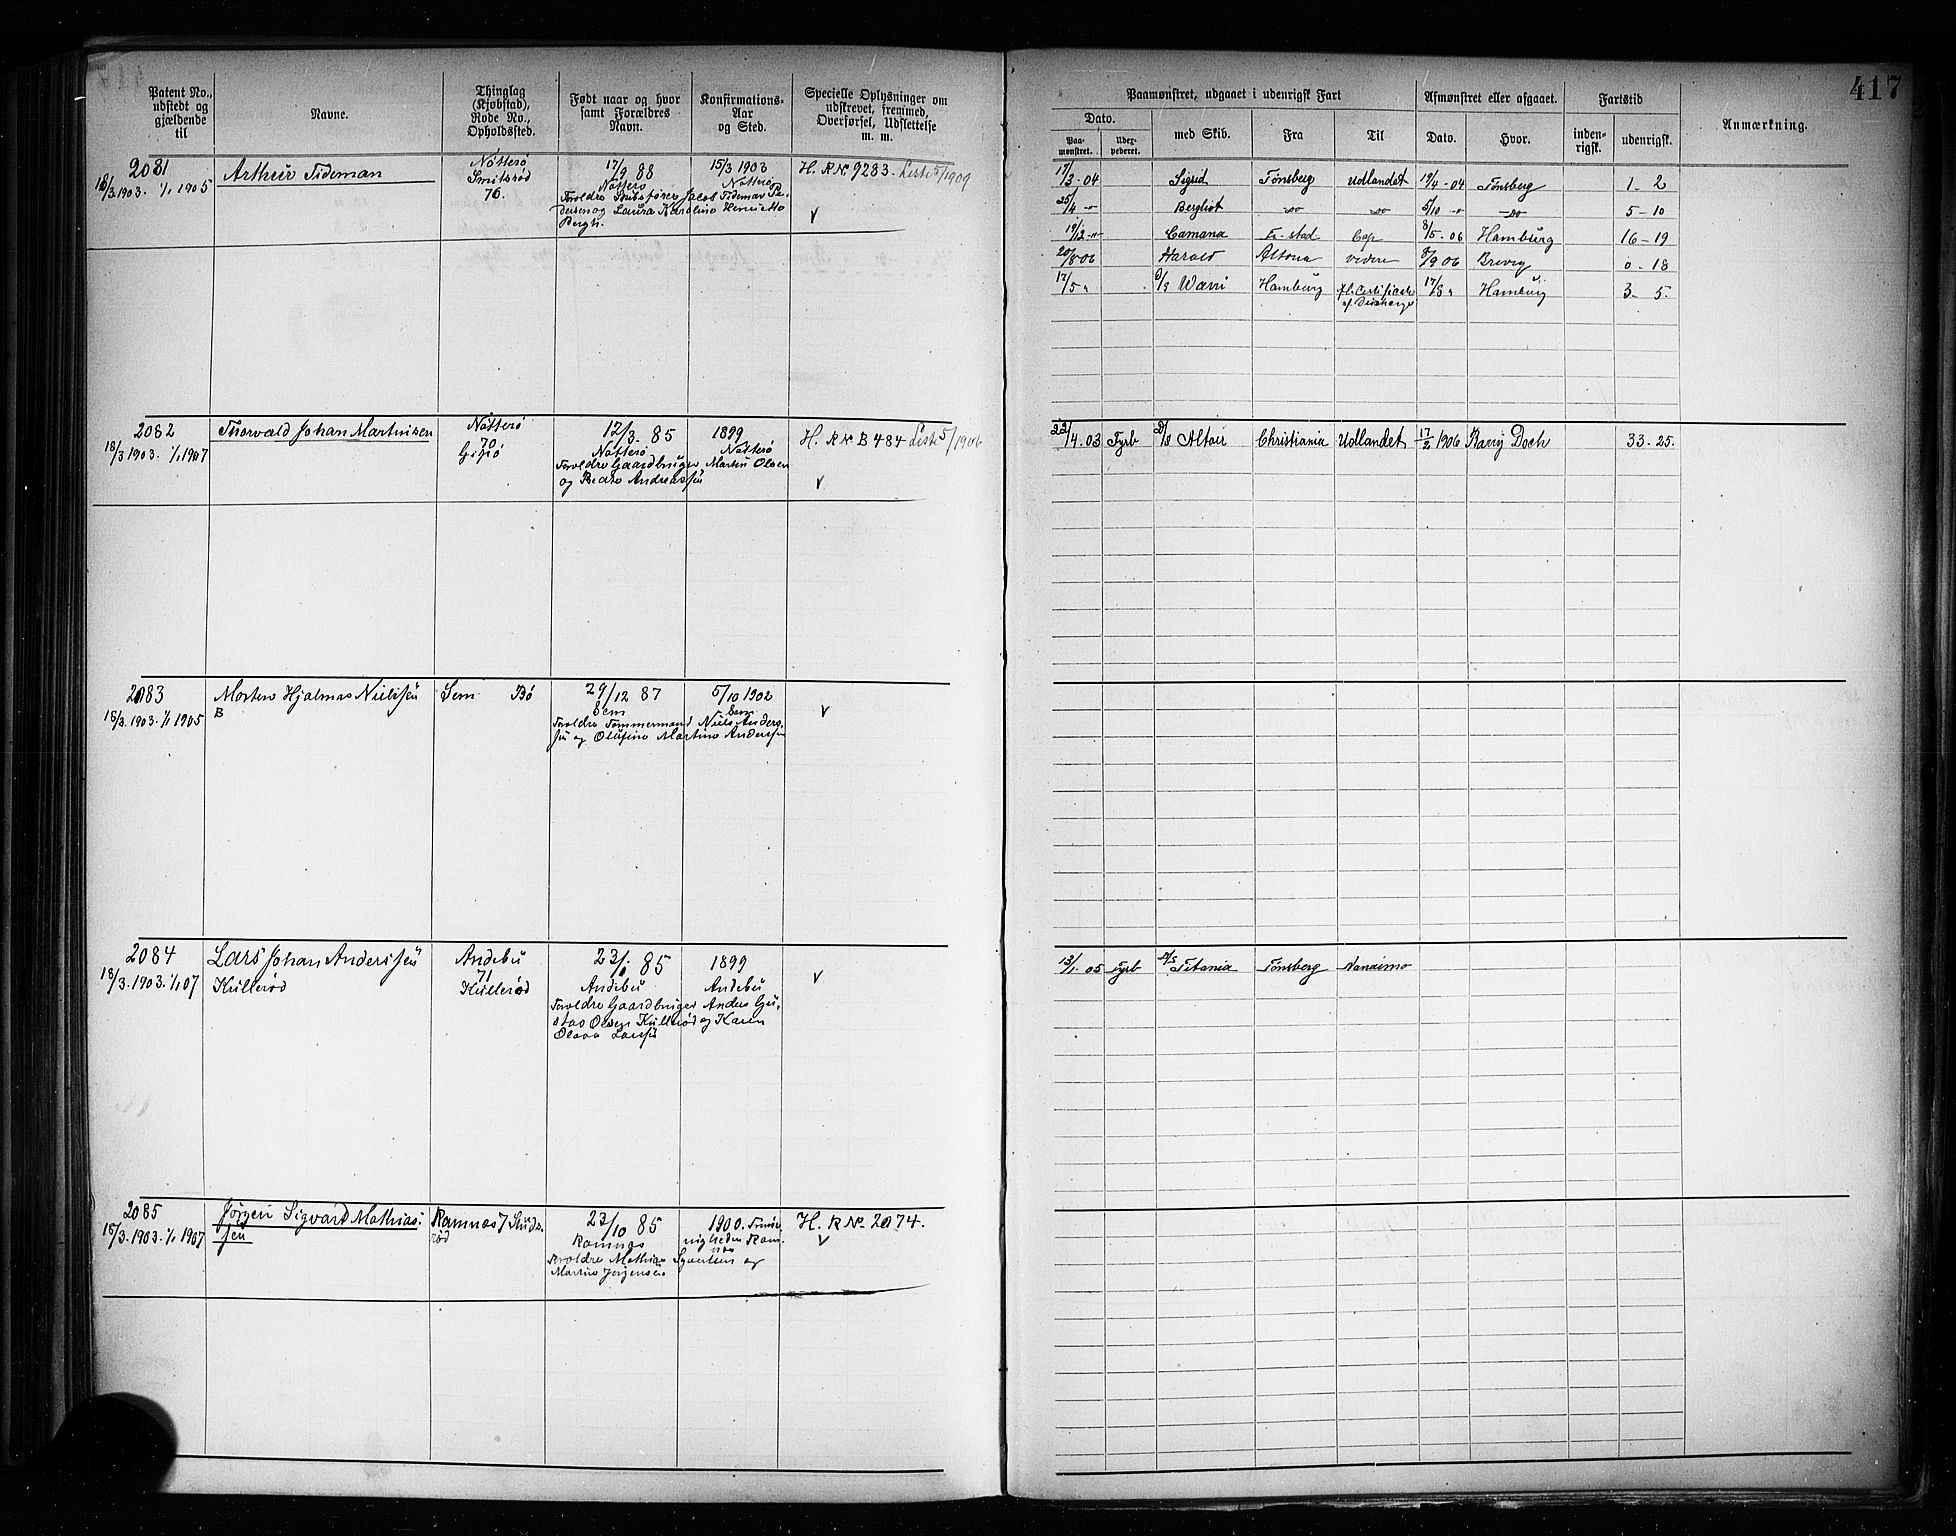 417
Patent No., udstedt og gjældende til
Navne.
Thinglag (Kjøbstad), Rode No., Opholdssted.
Født naar og hvor samt Forældres Navn.
Konfirmations- Aar og Sted.
Specielle Oplysninger om udskrevet, fremmed, Overførsel, Udslettelse m. m.
Paamønstret, udgaaet i udenrigsk Fart
Afmønstret eller afgaaet.
Fartstid
Anmærkning.
Dato.
Paa- mønstret.
med Skib.
Fra
Til
Dato.
Hvor.
inden- rigsk.
udenrigsk.
2081
18/3 1903. 1/1 1905
Arthur Tideman
Nøtterø
Smitsrød
76.
17/9 88
Nøtterø
15/3 1903
Nøtterø
Forældre Skibsfører Jacob Tideman Pe-
dersen og Laura Karoline Henriette
Bergh.
H. R No 9283. Liste 5/1909
V
17/3-04 Sigrid Tønsberg Udlandet 19/4-04 Tønsberg 1-2
25/4 -"- Bergliot do do 5/10 -"- do 5-10
19/12 -"- Camana Fr.stad Cap 8/5-06 Hamburg 16-19
20/8 06 Harald Altona videre 8/9 06 Brevig 0-18
17/5 " Warri Hamburg fl. Certificate of Discharge 17/8 " Hamburg 3-5.
2082
18/3 1903. 1/1 1907
Thorvald Johan Martinsen
Nøtterø
70
12/3. 85
Nøtterø
1899
Nøtterø
Forældre Gaardbruger Martin Olsen
og Andreassen
H. R No B 484 Liste 5/1906
V
22/4.03 Fyrb D/S Altair Christiania Udlandet 17/2 1906 Barry Dock 33-25.
2083
18/3 1903. 1/1 1905
Morten Hjalmar Nielssen
B
Sem Bø
29/12 87
Sem
5/10 1902
Sem
Forældre Tømmermand Niels Anders-
sen og Olufine Martine Anderssen
V
2084
18/3. 1903. 1/1 07
Lars Johan Anderssen
Kullerød
Andebu
71
Kullerød
85
Andebu
1899
Andebu
Forældre Gaardbruger Anders Gu-
stav Olsen Kullerød og Karen
Olava Larssen
V
13/1-05 Fyrb D/S Titania Tønsberg Nanaimo
2085
18/3. 1903. 1/1 1907
Jørgen Sigvard Mathias-
sen
Ramnæs 7
rød
23/10 85
Ramnæs
1900.
Ram-
næs
Forældre Mathias Syvertsen og
Martine Jørgensen
H. R No. 2074.
V